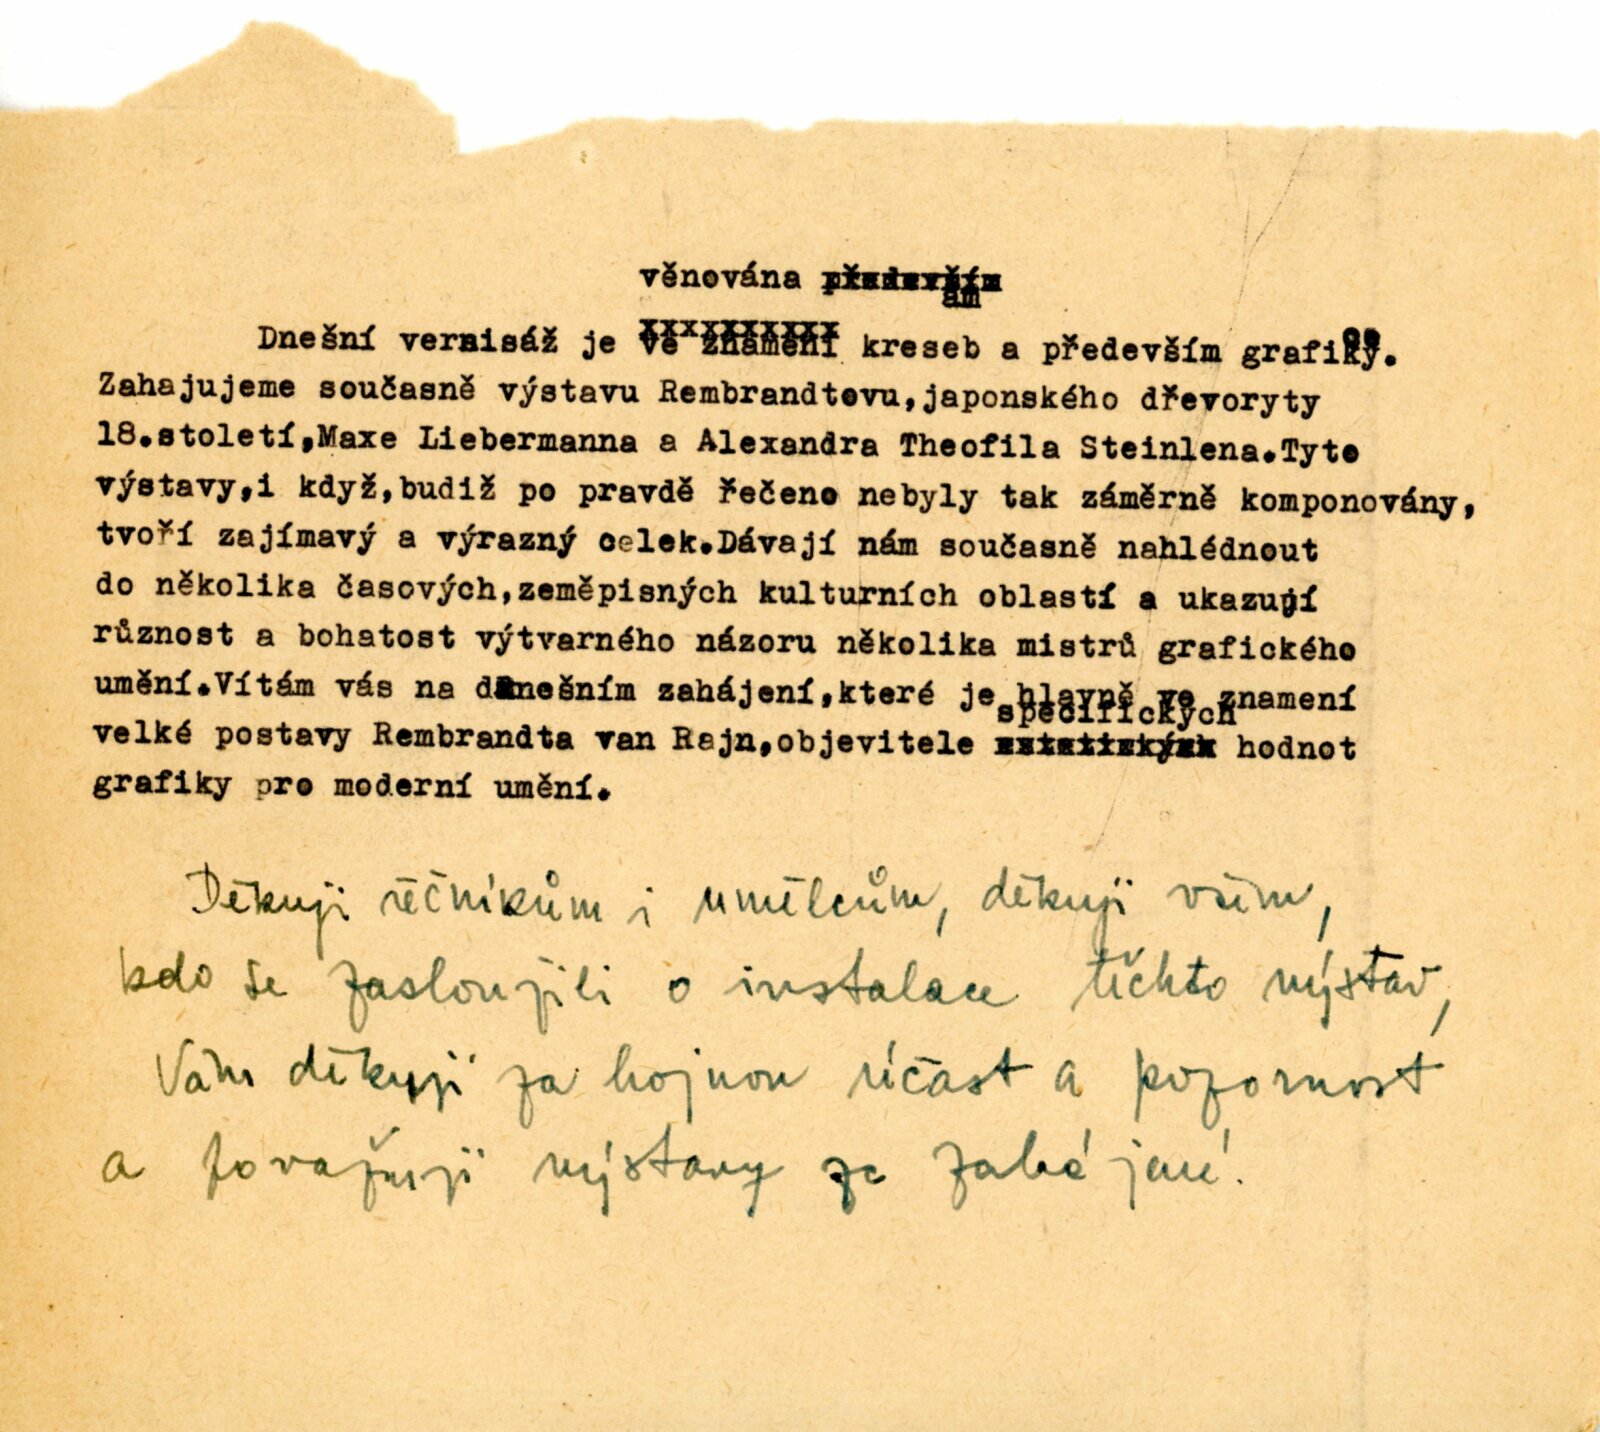 věnována především
ám
Dnešní vernisáž je ve znamení kreseb a především grafiky.
ce
Zahajujeme současně výstavu Rembrandtovu,japonského dřevoryty
18.století,Maxe Liebermanna a Alexandra Theofila Steinlena.Tyto
výstavy,i když,budiž po pravdě řečeno nebyly tak záměrně komponovány,
tvoří zajímavý a výrazný celek.Dávají nám současně nahlédnout
do několika časových,zeměpisných kulturních oblastí a ukazují
různost a bohatost výtvarného názoru několika mistrů grafického
umění.Vítám vás na dnešním zahájení,které je hlavně ve znamení
specifických
velké postavy Rembrandta van Rajn,objevitele hodnot
grafiky pro moderní umění.
Děkuji řečníkům i umělcům, děkuji všem,
kdo se zasloužili o instalace těchto výstav,
Vám děkuji za hojnou účast a pozornost
a považuji výstavy za zahájené.